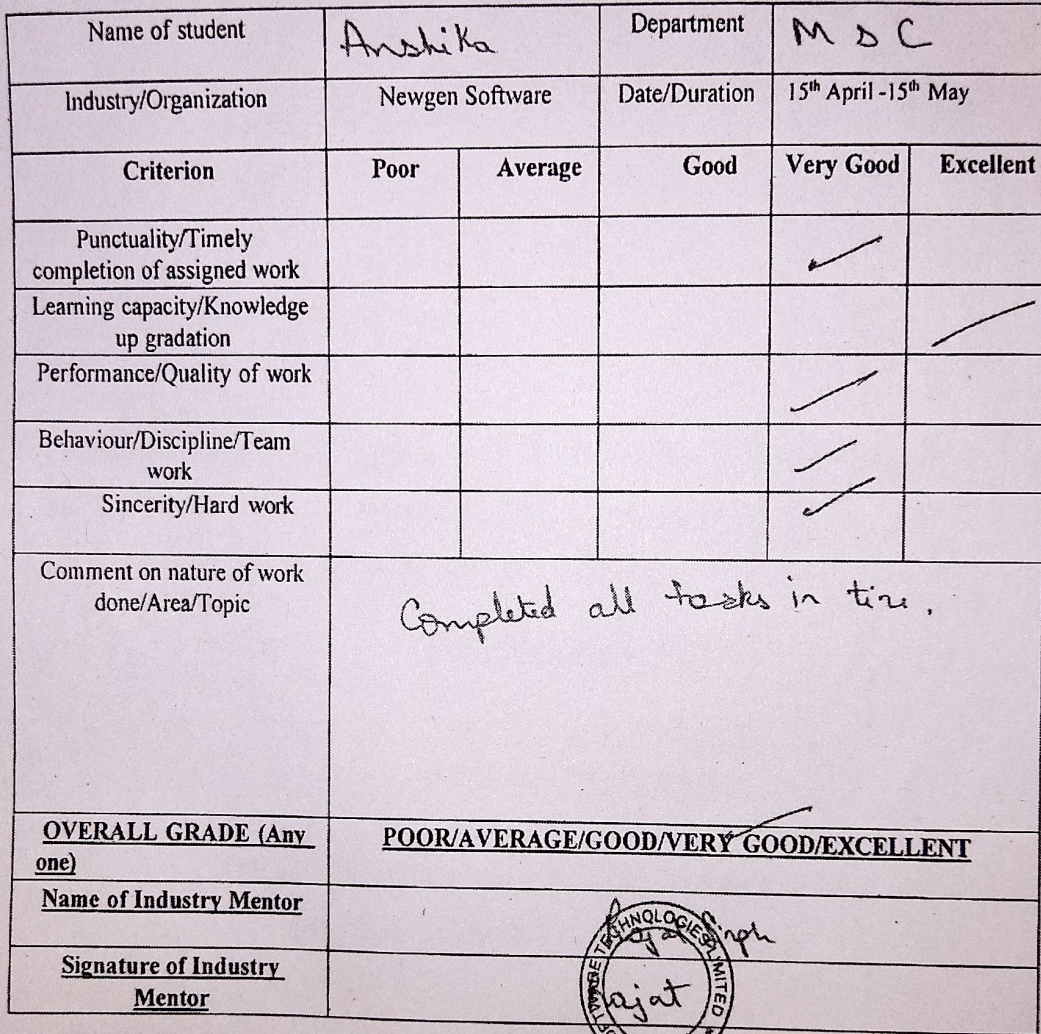 Name of student Anshika Department M D C
Industry/Organization Newgen Software Date/Duration 15th April -15th May
Criterion Poor Average Good Very Good Excellent
Punctuality/Timely
completion of assigned work
Learning capacity/Knowledge
up gradation
Performance/Quality of work
Behaviour/Discipline/Team
work
Sincerity/Hard work
Comment on nature of work
done/Area/Topic
Completed all tasks in time.
OVERALL GRADE (Any
one)
POOR/AVERAGE/GOOD/VERY GOOD/EXCELLENT
Name of Industry Mentor
Signature of Industry
Mentor
Rajat
TECHNOLOGIES LIMITED